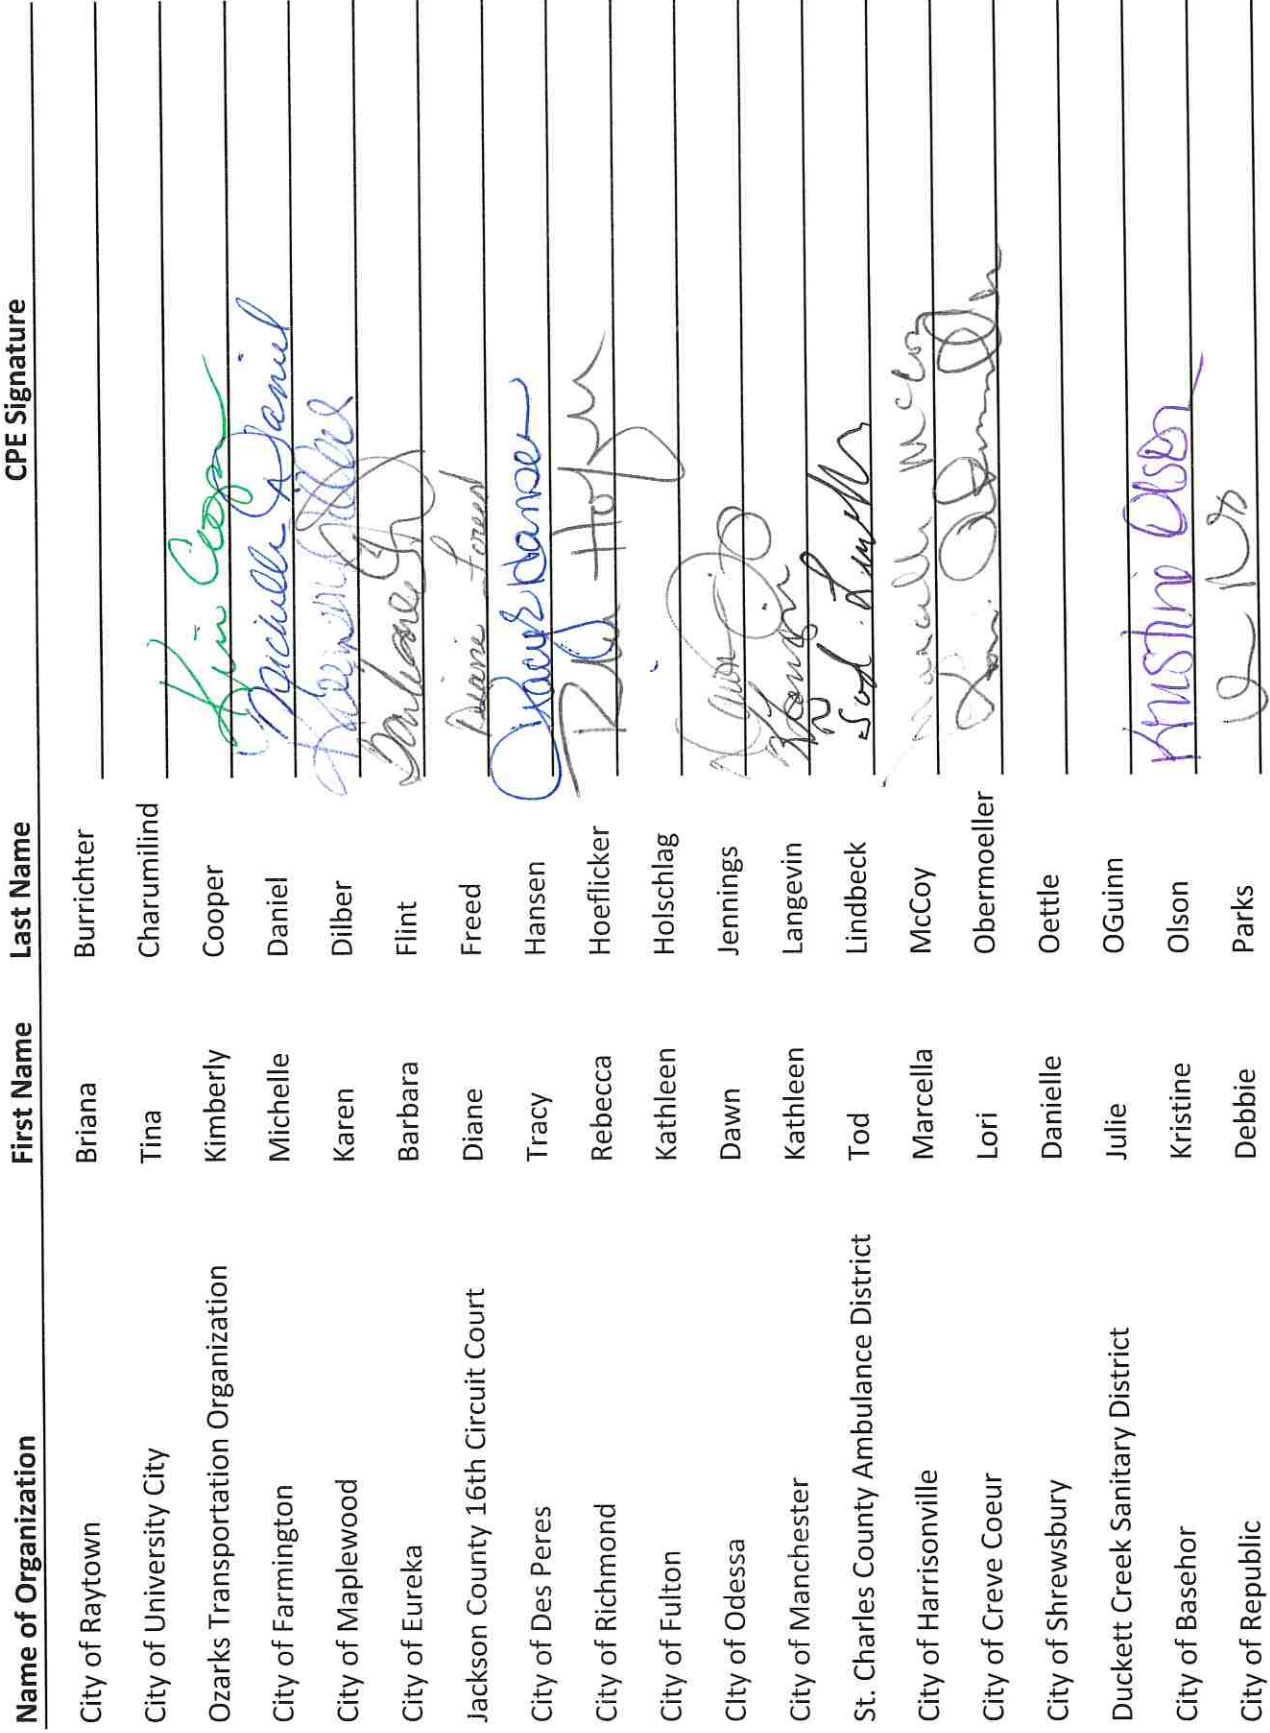 Name of Organization First Name Last Name CPE Signature
City of Raytown Briana Burrichter
City of University City Tina Charumilind
Ozarks Transportation Organization Kimberly Cooper Kim Cooper
City of Farmington Michelle Daniel Michelle Daniel
City of Maplewood Karen Dilber Karen Dilber
City of Eureka Barbara Flint Barbara
Jackson County 16th Circuit Court Diane Freed Diane Freed
City of Des Peres Tracy Hansen Tracy Hansen
City of Richmond Rebecca Hoeflicker
City of Fulton Kathleen Holschlag
CIty of Odessa Dawn Jennings
City of Manchester Kathleen Langevin
St. Charles County Ambulance District Tod Lindbeck Tod
City of Harrisonville Marcella McCoy Marcella McCoy
City of Creve Coeur Lori Obermoeller Lori
City of Shrewsbury Danielle Oettle
Duckett Creek Sanitary District Julie OGuinn
City of Basehor Kristine Olson Kristine Olson
City of Republic Debbie Parks